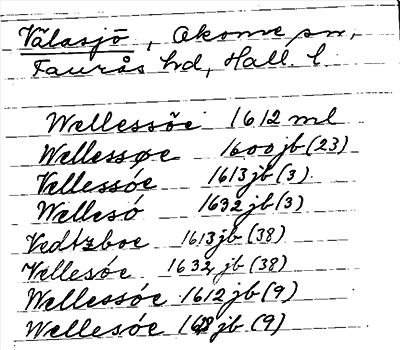 Välasjö, Akome sn,
Faurås hd, Hall. l.
Wellessöe 1612 ml
Wellessøe 1600 jb (23)
Vellessóe 1613 jb (3)
Wellesó 1632 jb (3)
Vedtzboe 1613 jb (38)
Vellesóe 1632 jb (38)
Wellessóe 1612 jb (9)
Wellesóe jb (9)